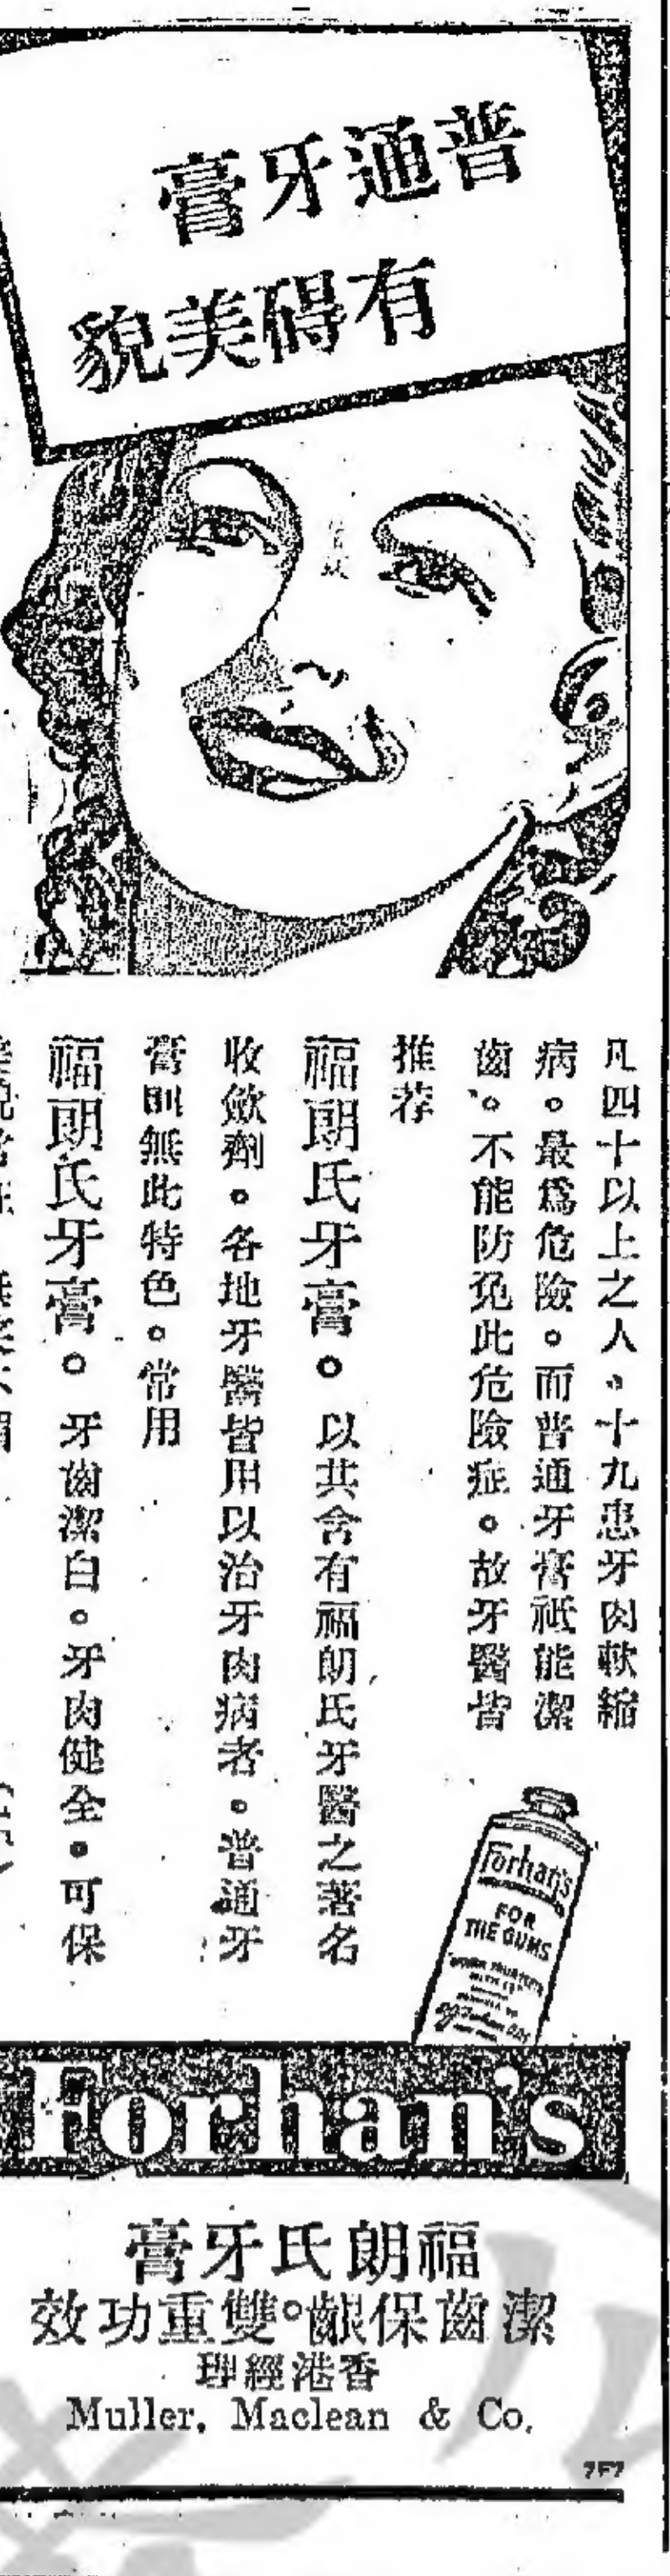 普通牙膏
有碍美貌
凡四十以上之人。十九患牙肉軟縮
病。最爲危險。而普通牙膏祗能潔
齒。不能防免此危險症。故牙醫皆
推荐
福朗氏牙膏。以其含有福朗氏牙醫之著名
收歛劑。各地牙醫皆用以治牙肉病者。普通牙
膏則無此特色。常用
福朗氏牙膏。牙齒潔白。牙肉健全。可保
Forhan's
FOR
THE GUMS
Forhan's
福朗氏牙膏
潔齒保齦。雙重功效
香港經理
Muller, Maclean & Co.
7F7